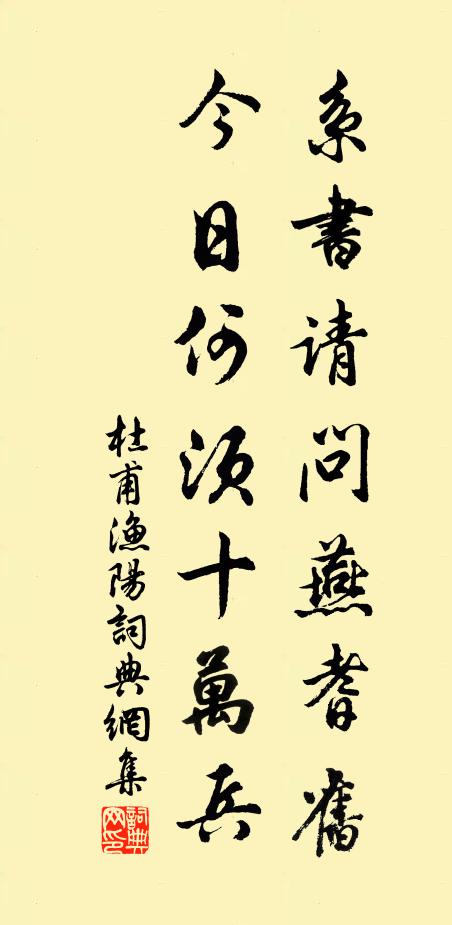 系書请問燕耆舊
今日何須十萬兵
杜甫漁陽詞典網集
詞典網印